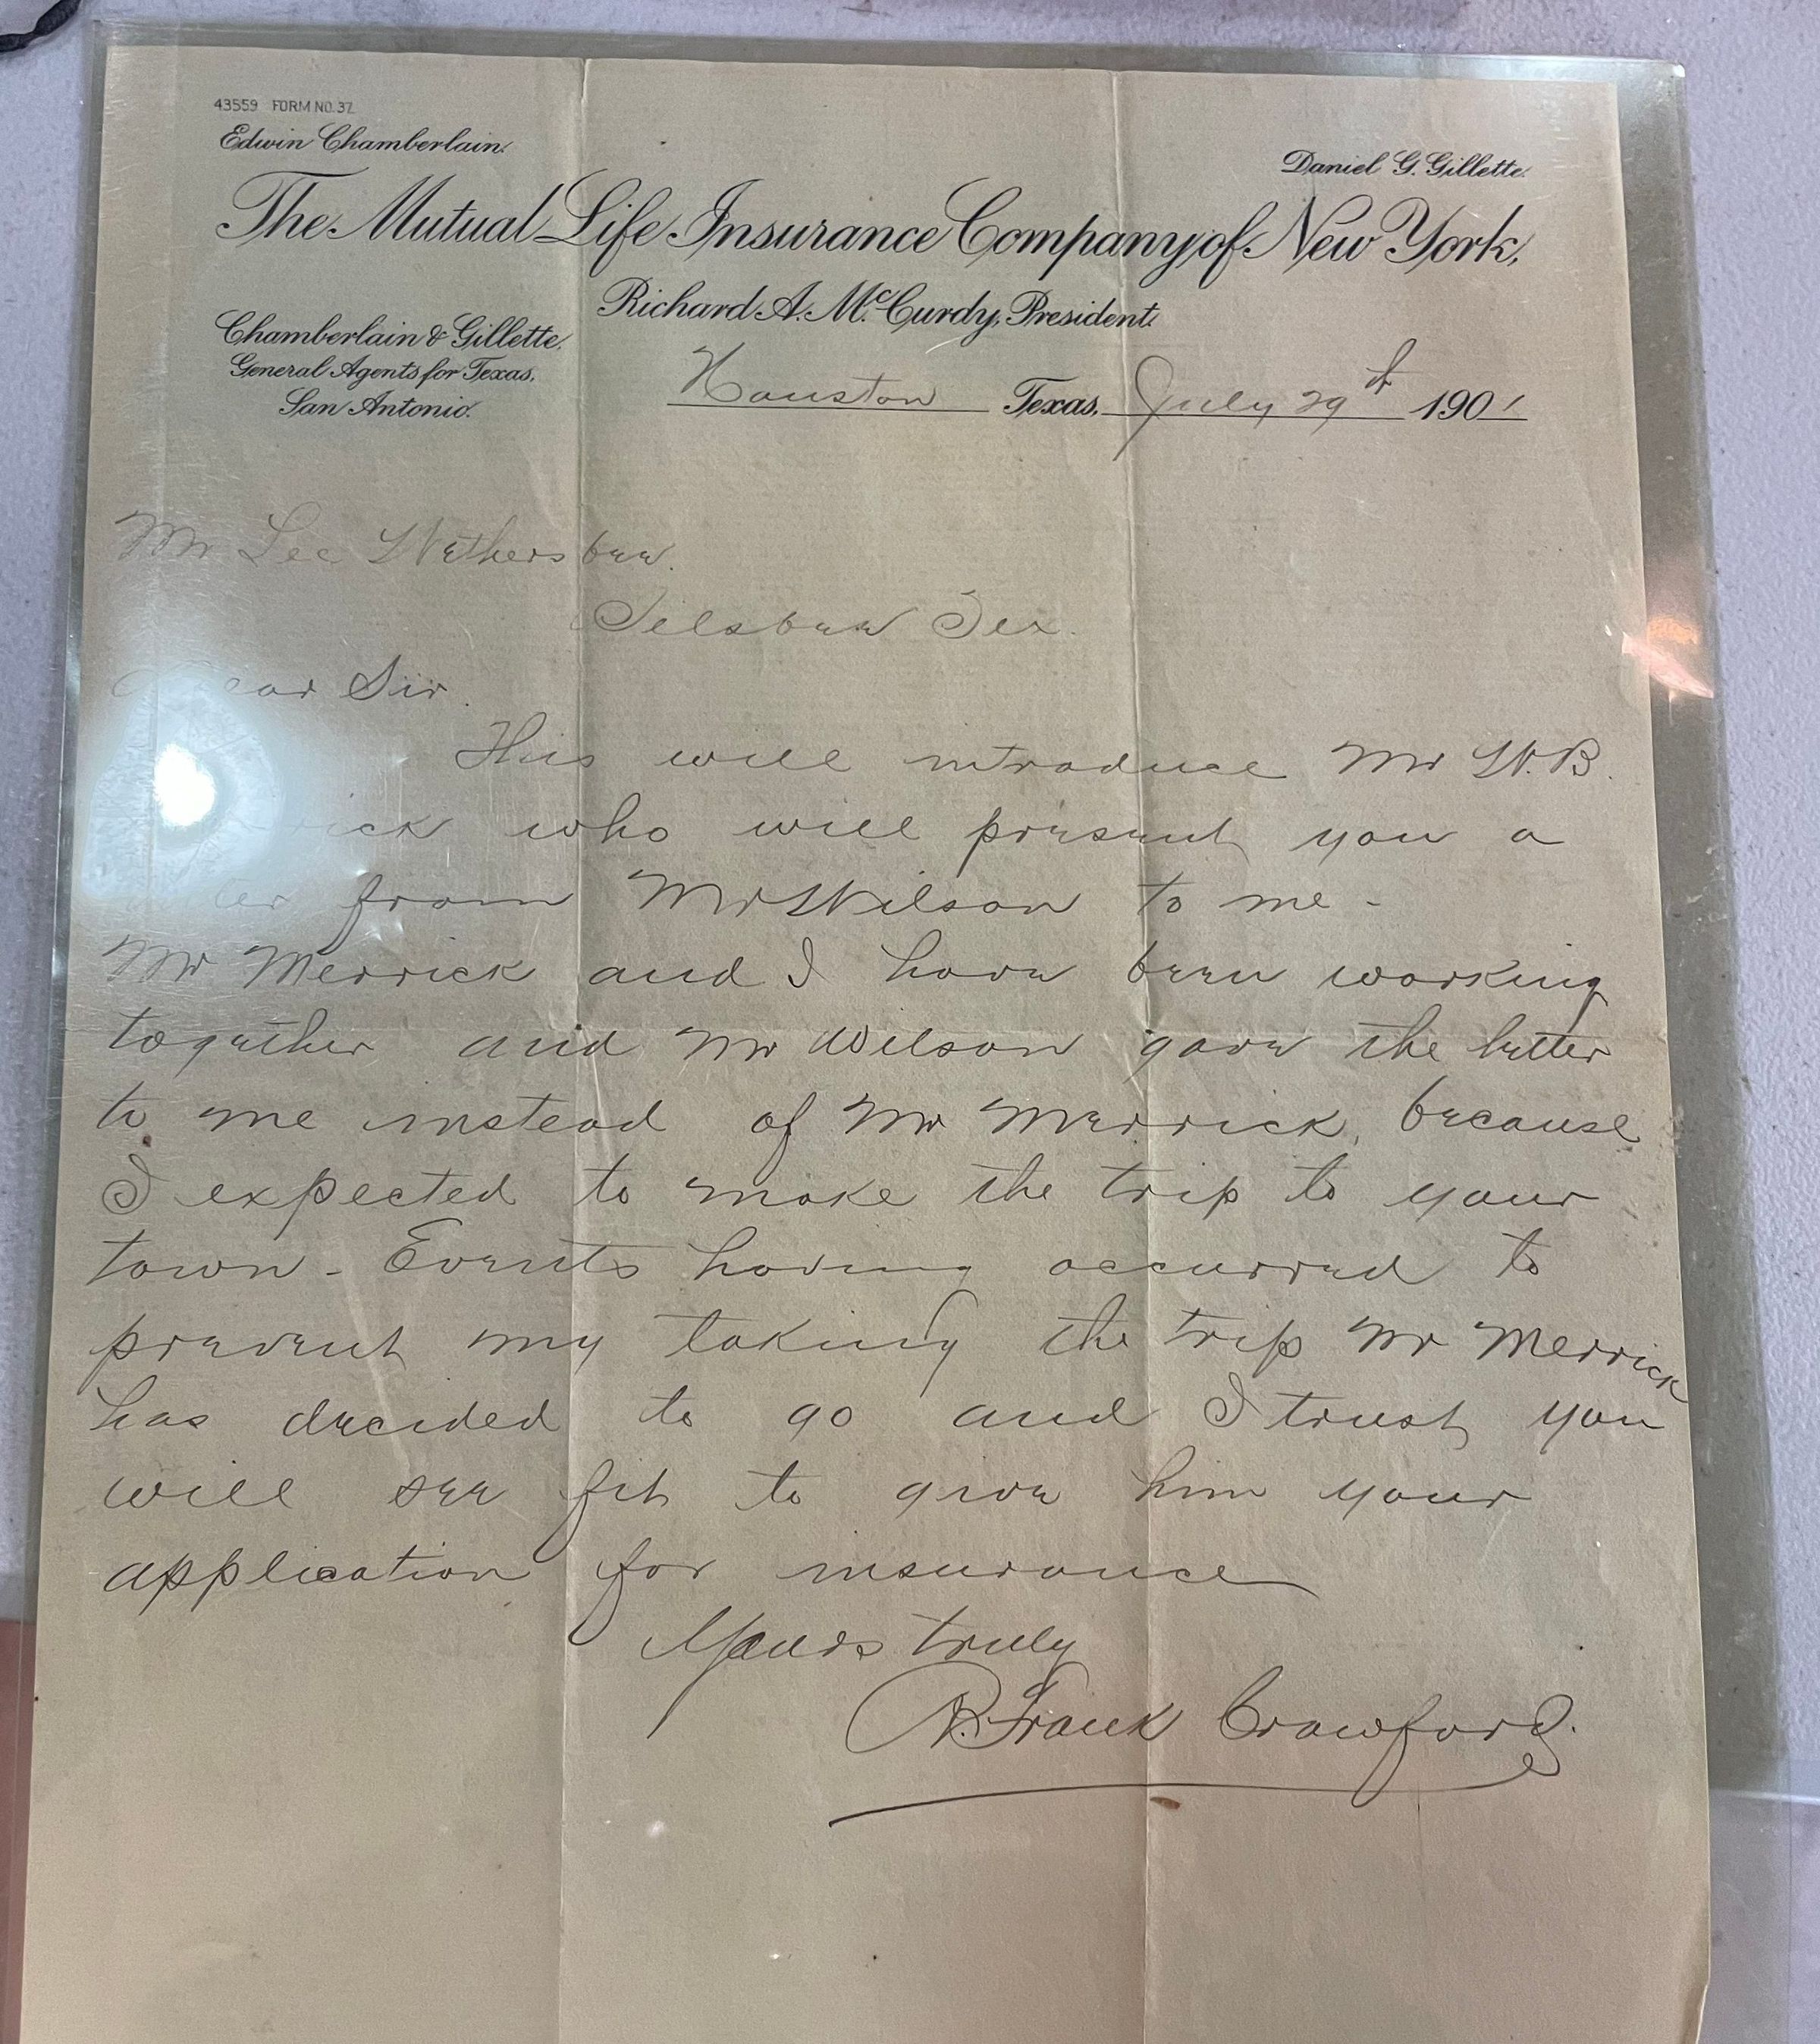 43559 FORM NO. 37
Edwin Chamberlain.
Daniel G. Gillette.
The Mutual Life Insurance Company of New York,
Richard A. McCurdy, President.
Chamberlain & Gillette,
General Agents for Texas,
San Antonio.
Houston Texas, July 29th 1901
Mr Lee Wethersbee.
Silsbee Tex.
Dear Sir.
This will introduce Mr W.B.
who will present you a
from Mr Wilson to me -
Mr Merrick and I have been working
together and Mr Wilson gave the letter
to me instead of Mr Merrick, because
I expected to make the trip to your
town - Events having occurred to
prevent my taking the trip Mr Merrick
has decided to go and I trust you
will see fit to give him your
application for insurance
Yours truly
R. Frank Crawford.